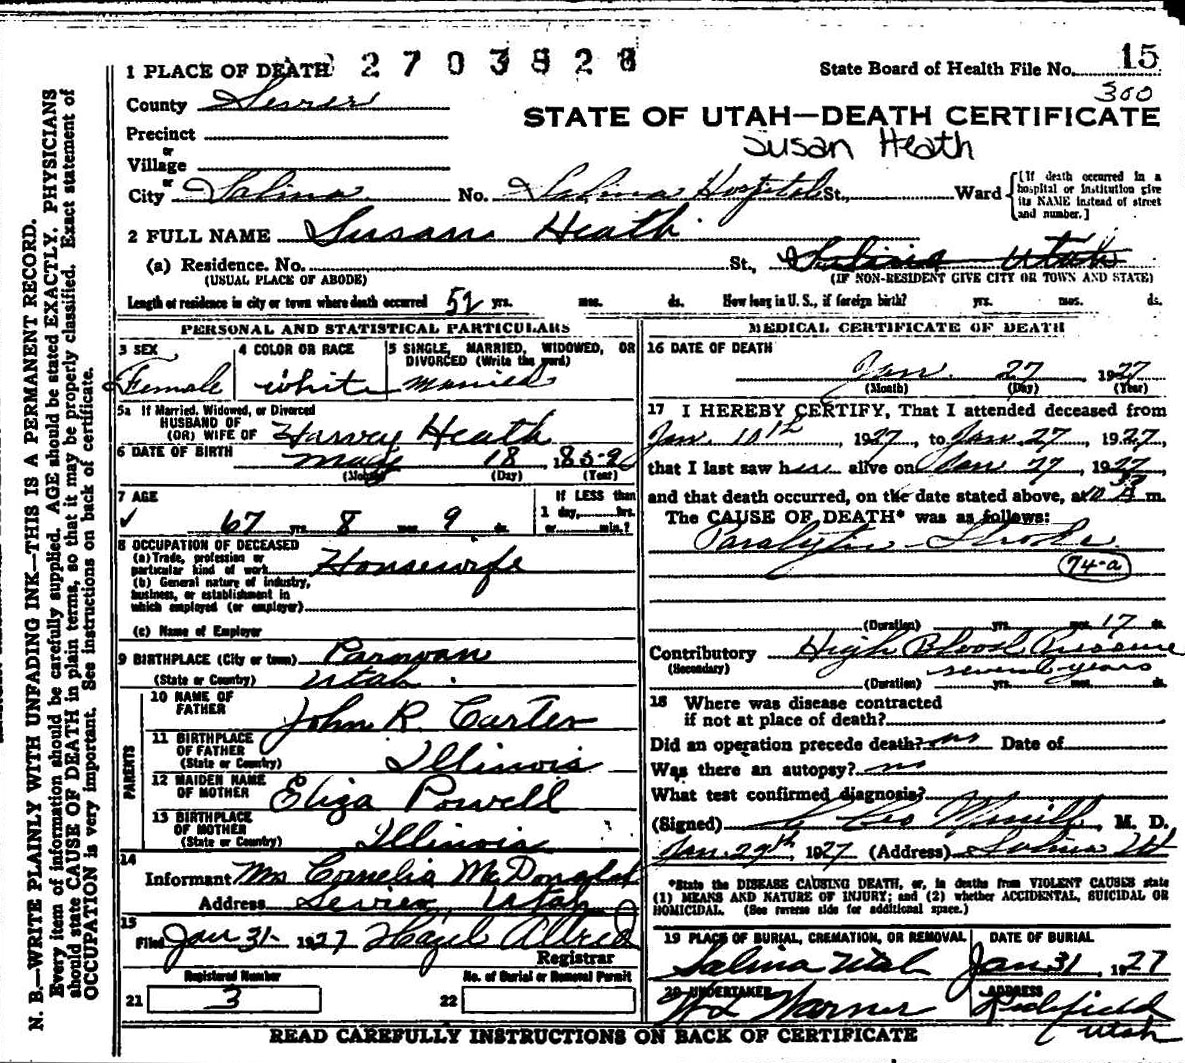 2703828
15
1 PLACE OF DEATH
State Board of Health File No.
300
County Sevier
STATE OF UTAH—DEATH CERTIFICATE
Susan Heath
Precinct
or
Village
or
City Salina No. Salina Hospital St., Ward
[If death occurred in a hospital or institution give its NAME instead of street and number.]
2 FULL NAME Susan Heath
(a) Residence. No. St., Utah
(USUAL PLACE OF ABODE)
(IF NON-RESIDENT GIVE CITY OR TOWN AND STATE)
Length of residence in city or town where death occurred 52 yrs. mos. ds. How long in U. S., if foreign birth? yrs. mos. ds.
PERSONAL AND STATISTICAL PARTICULARS
3 SEX
Female
4 COLOR OR RACE
white
5 SINGLE, MARRIED, WIDOWED, OR DIVORCED (Write the word)
married
5a If Married, Widowed, or Divorced
HUSBAND OF
(OR) WIFE OF Harvey Heath
6 DATE OF BIRTH May 18, 1859
(Month) (Day) (Year)
7 AGE
67 yrs. 8 mos. 9 ds.
If LESS than
1 day, hrs.
or min.?
8 OCCUPATION OF DECEASED
(a) Trade, profession or
particular kind of work Housewife
(b) General nature of industry,
business, or establishment in
which employed (or employer)
(c) Name of Employer
9 BIRTHPLACE (City or town) Parowan
(State or Country) Utah.
PARENTS
10 NAME OF
FATHER John R. Carter
11 BIRTHPLACE
OF FATHER
(State or Country) Illinois
12 MAIDEN NAME
OF MOTHER Eliza Powell
13 BIRTHPLACE
OF MOTHER
(State or Country) Illinois
14
Informant Mrs Cornelia McDonald
Address Sevier, Utah
15
Filed Jan 31 1927 Hazel Allred
Registrar
Registered Number
No. of Burial or Removal Permit
21 3
22
MEDICAL CERTIFICATE OF DEATH
16 DATE OF DEATH
Jan. 27, 1927
(Month) (Day) (Year)
17 I HEREBY CERTIFY, That I attended deceased from
Jan. 10th, 1927, to Jan 27, 1927,
that I last saw her alive on Jan 27, 1927
and that death occurred, on the date stated above, at m.
The CAUSE OF DEATH* was as follows:
Paralytic Stroke
74-a
(Duration) yrs. mos. 17 ds.
Contributory High Blood Pressure
(Secondary) several years
(Duration) yrs. mos. ds.
18 Where was disease contracted
if not at place of death?
Did an operation precede death? no Date of
Was there an autopsy? no
What test confirmed diagnosis?
(Signed) , M. D.
Jan 29th, 1927 (Address) Salina Ut
*State the DISEASE CAUSING DEATH, or, in deaths from VIOLENT CAUSES state
(1) MEANS AND NATURE OF INJURY; and (2) whether ACCIDENTAL, SUICIDAL OR
HOMICIDAL. (See reverse side for additional space.)
19 PLACE OF BURIAL, CREMATION, OR REMOVAL
Salina Utah
DATE OF BURIAL
Jan 31, 1927
20 UNDERTAKER
Warner
ADDRESS
Richfield
Utah
READ CAREFULLY INSTRUCTIONS ON BACK OF CERTIFICATE
N. B.—WRITE PLAINLY WITH UNFADING INK—THIS IS A PERMANENT RECORD.
Every item of information should be carefully supplied. AGE should be stated EXACTLY. PHYSICIANS
should state CAUSE OF DEATH in plain terms, so that it may be properly classified. Exact statement of
OCCUPATION is very important. See instructions on back of certificate.